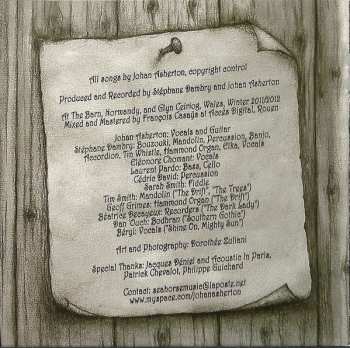 All songs by Johan Asherton, copyright control
Produced and Recorded by Stéphane Dambry and Johan Asherton
At The Barn, Normandy, and Glyn Ceiriog, Wales, Winter 2011/2012
Mixed and Mastered by François Casays at Accès Digital, Rouen
Johan Asherton: Vocals and Guitar
Stéphane Dambry: Bouzouki, Mandolin, Percussion, Banjo,
Accordion, Tim Whistle, Hammond Organ, Elka, Vocals
Eléonore Chomant: Vocals
Laurent Pardo: Bass, Cello
Cédric David: Percussion
Sarah Smith: Fiddle
Tim Smith: Mandolin ("The Drift", "The Trees")
Geoff Grimes: Hammond Organ ("The Drift")
Béatrice Decayeux: Recorders ("The Dark Lady")
Dan 'Ouch: Bodhran ("Southern Gothic")
Béryl: Vocals ("Shine On, Mighty Sun")
Art and Photography: Dorothée Zuliani
Special Thanks: Jacques Déniel and Acoustic In Paris,
Patrick Chevalot, Philippe Guichard
Contact: seahorsemusic@laposte.net
www.myspace.com/johanasherton